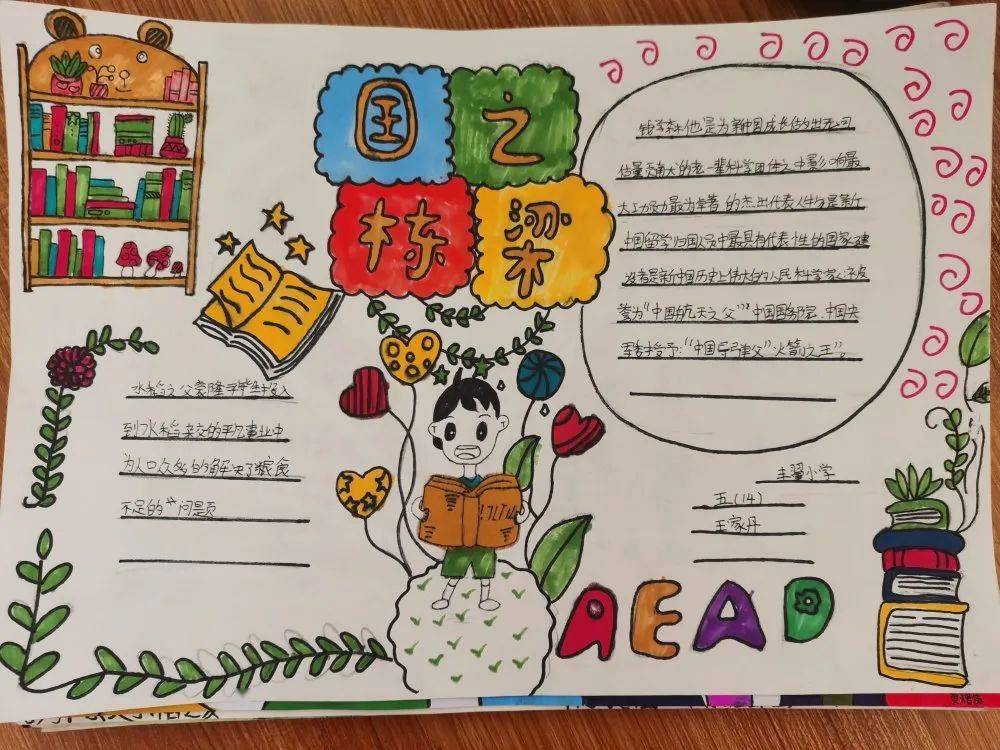 国之
栋梁
钱学森他是为新中国成长做出不可
估量贡献的老一辈科学团体人中影响最
大功勋最为卓著的杰出代表人物是新
中国留学归国人员中最具有代表性的国家建
设者是新中国历史上伟大的人民科学家被
誉为"中国航天之父""中国国务院、中国央
军委授予:"中国导弹之父""火箭之王"。
水稻之父袁隆平毕生投入
到水稻杂交的研究事业中
为人口众多的解决了粮食
不足的问题
丰翼小学
五(14)
王家丹
READ